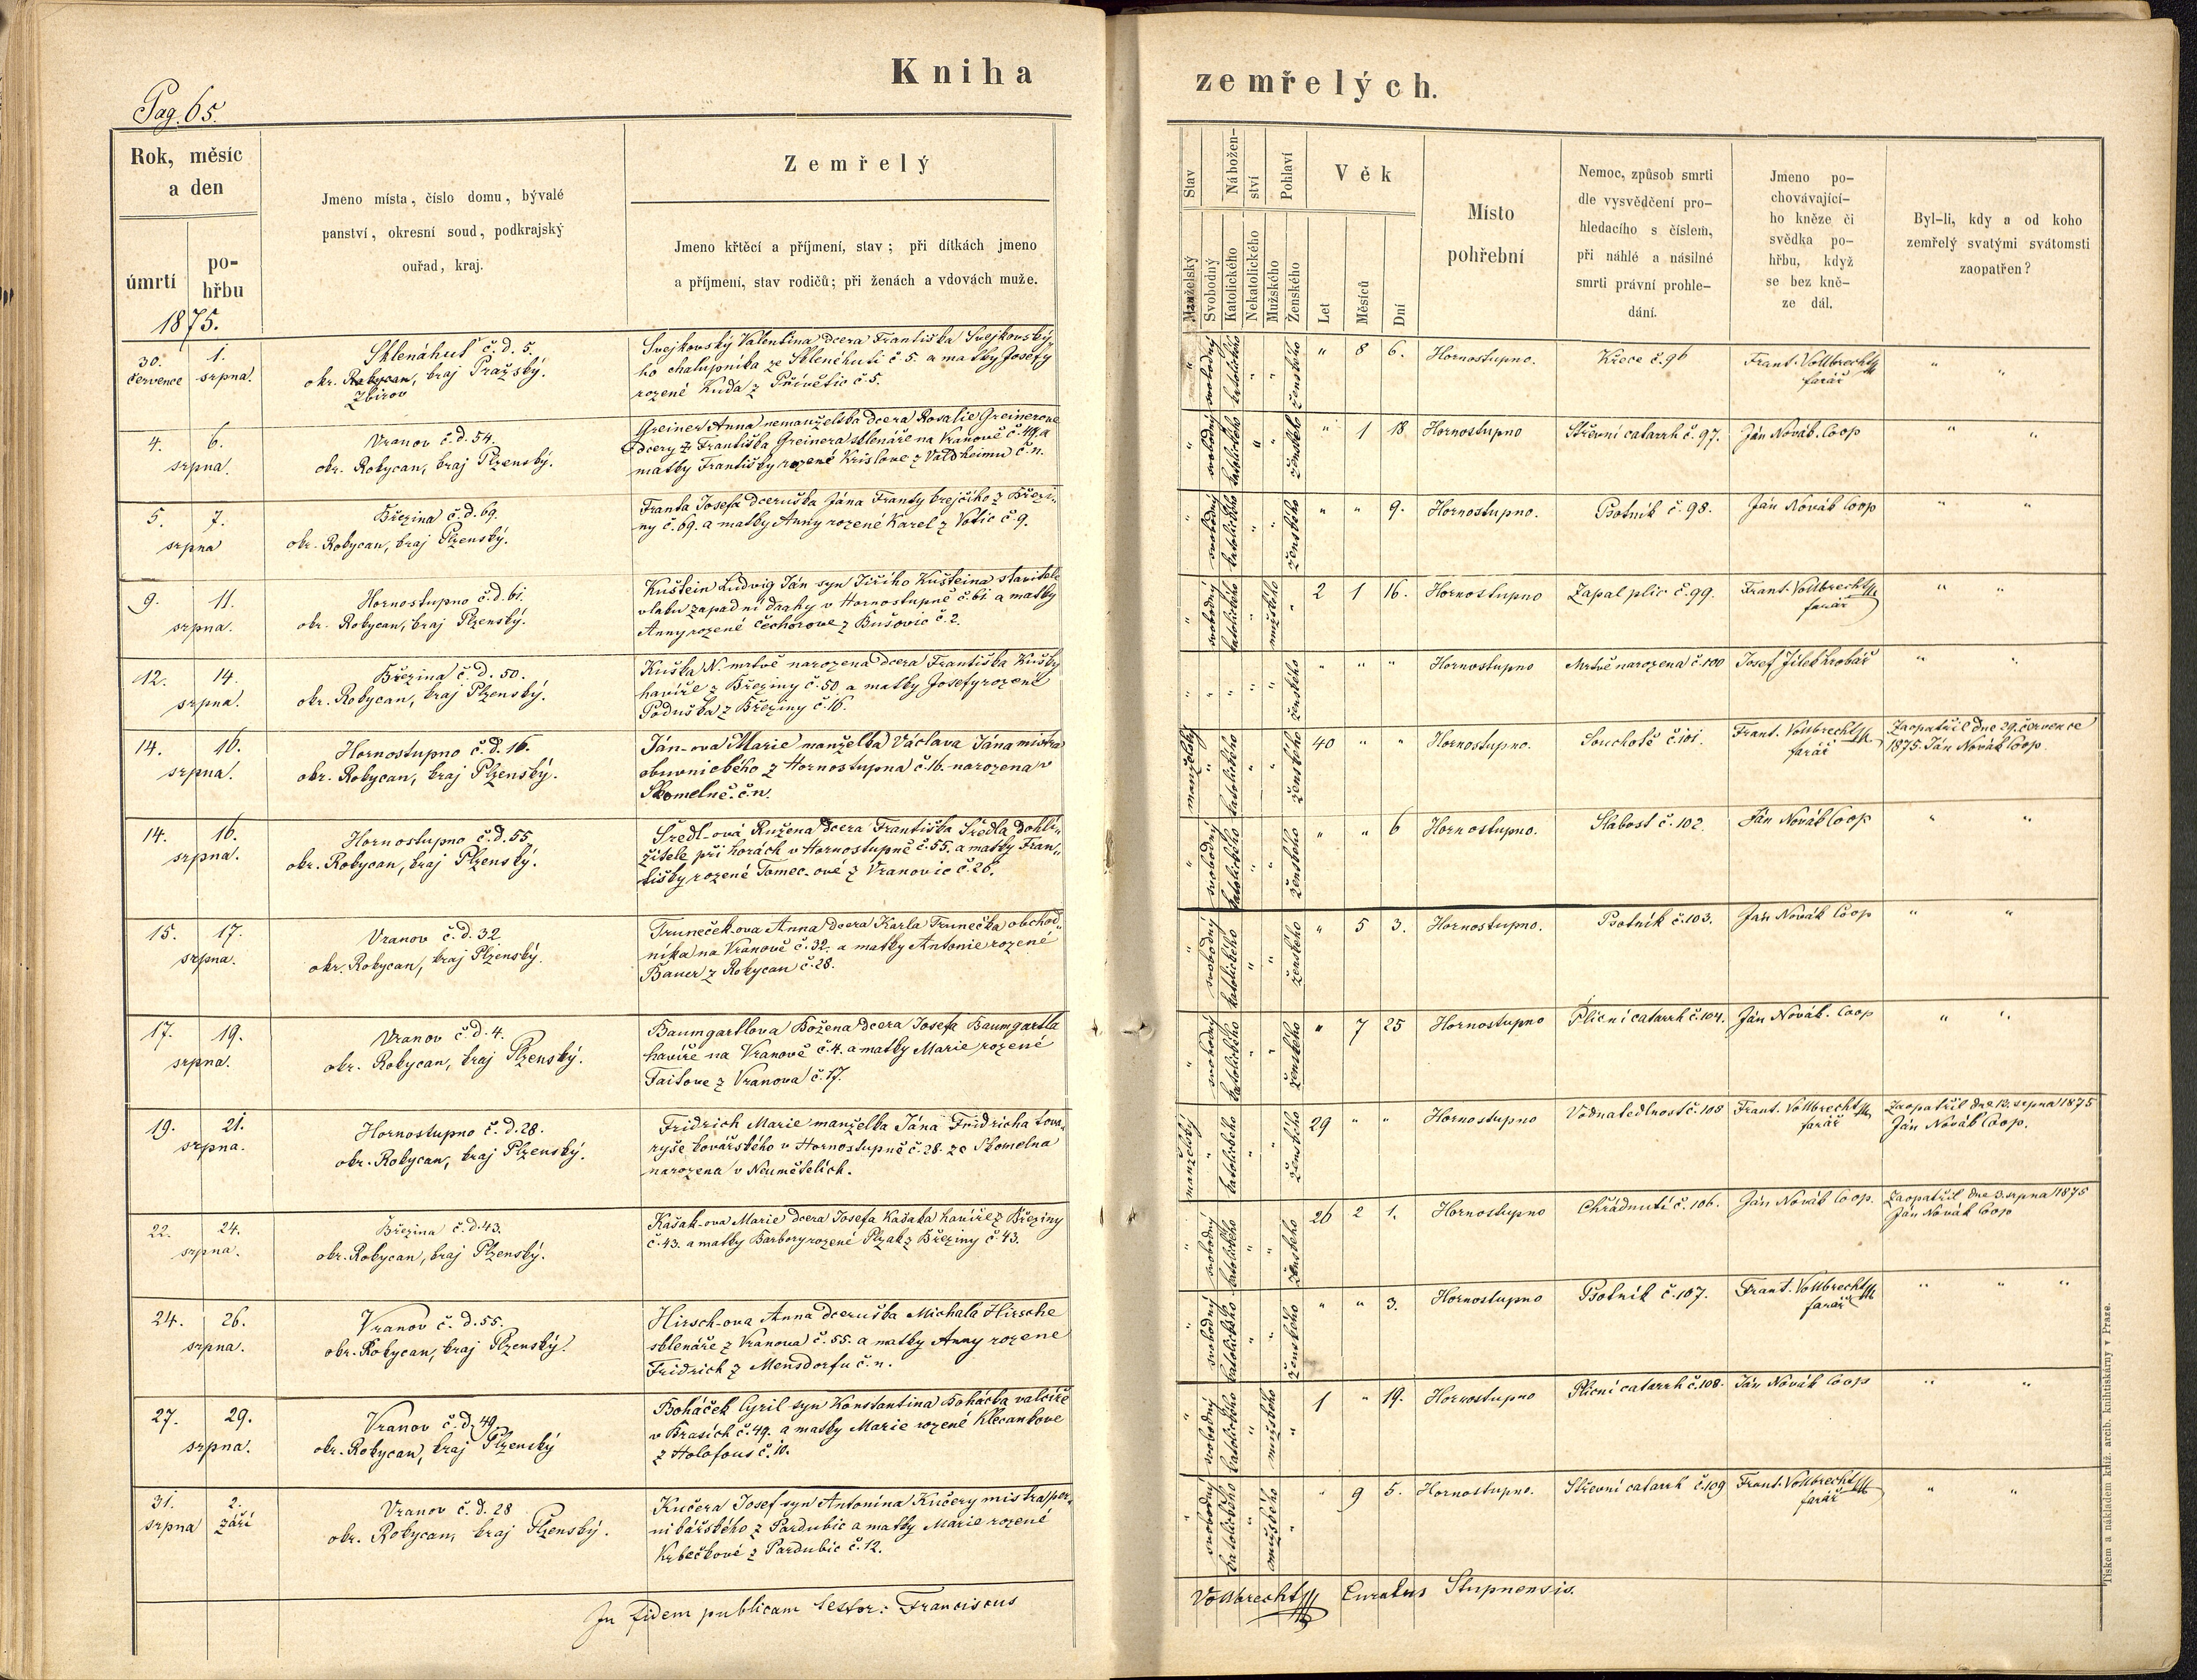 Kniha zemřelých.
Pag. 65.
Rok, měsíc
a den
úmrtí
po-
hřbu
1875.
Jmeno místa, číslo domu, bývalé
panství, okresní soud, podkrajský
ouřad, kraj.
Zemřelý
Jmeno křtěcí a příjmení, stav; při dítkách jmeno
a příjmení, stav rodičů; při ženách a vdovách muže.
Stav
Nábožen-
ství
Pohlaví
Manželský
Svobodný
Katolického
Nekatolického
Mužského
Ženského
Věk
Let
Měsíců
Dní
Místo
pohřební
Nemoc, způsob smrti
dle vysvědčení pro-
hledacího s číslem,
při náhlé a násilné
smrti právní prohle-
dání.
Jmeno po-
chovávající-
ho kněze či
svědka po-
hřbu, když
se bez kně-
ze dál.
Byl-li, kdy a od koho
zemřelý svatými svátomsti
zaopatřen?
30. července
1. srpna.
Sklenáhuť č. d. 5.
okr. Rokycan, kraj Pražský.
Zbirov
Svejkovský Valentina dcera Františka Svejkovský-
ho chalupníka ze Sklenéhuti č 5. a matky Josefy
rozené Kuda z Přívětic č. 5.
" svobodný katolického " " ženského
" 8 6.
Hornostupno.
Křece č. 96
Frant. Vollbrecht
farář
" "
4. 6.
srpna.
Vranov č. d. 54.
okr. Rokycan, kraj Plzenský.
Greiner Anna nemanželska dcera Rosalie Greinerove
dcery z Františka Greinera sklenáře na Vranově č. 49. a
matky Františky rozené Krislove z Valdheimu č. n.
" svobodný katolického " " ženského
" 1 18
Hornostupno
Střevní catarrh č. 97.
Ján Novák. Coop
" "
5. 7.
srpna
Březina č. d. 69.
okr. Rokycan, kraj Plzenský.
Franta Josefa dceruška Jána Franty krejčího z Březi-
ny č. 69. a matky Anny rozené Karel z Votic č. 9.
" svobodný katolického " " ženského
" " 9.
Hornostupno.
Psotník č. 98.
Ján Novák Coop
" "
9. 11.
srpna.
Hornostupno č. d. 61.
okr. Rokycan, kraj Plzenský.
Kuštein Ludvig Ján syn Jiřího Kušteina stavitele
vlaku zapadní drahy v Hornostupně č. 61 a matky
Anny rozené Čechorove z Bušovic č. 2.
" svobodný katolického " mužského "
2 1 16.
Hornostupno
Zapal plic č. 99.
Frant. Vollbrecht
farář
" "
12. 14.
srpna.
Březina č. d. 50.
okr. Rokycan, kraj Plzenský.
Kuška N. mrtvě narozena dcera Františka Kušky
havíře z Březiny č. 50 a matky Josefy rozené
Poduška z Březiny č. 16.
" " " " " ženského
" " "
Hornostupno
Mrtvě narozena č. 100
Josef Jílek hrobář
" "
14. 16.
srpna.
Hornostupno č. d. 16.
okr. Rokycan, kraj Plzenský.
Ján-ova Marie manželka Václava Jána mistra
obuvnického z Hornostupna č. 16. narozena v
Skomelně. č. n.
manželský " katolického " " ženského
40 " "
Hornostupno.
Souchotě č. 101.
Frant. Vollbrecht
farář
Zaopatřil dne 29. července
1875. Ján Novák Coop.
14. 16.
srpna.
Hornostupno č. d. 55.
okr. Rokycan, kraj Plzenský.
Šredl-ová Ružena dcera Františka Šredla dohlí-
žitele při horách v Hornostupně č. 55. a matky Fran-
tišky rozené Tomec-ové z Vranovic č. 26.
" svobodný katolického " " ženského
" " 6
Hornostupno.
Slabost č. 102.
Ján Novák Coop
" "
15. 17.
srpna.
Vranov č. d. 32.
okr. Rokycan, kraj Plzenský.
Truneček-ova Anna dcera Karla Trunečka obchod-
níka na Vranově č. 32. a matky Antonie rozené
Bauer z Rokycan č. 28.
" svobodný katolického " " ženského
" 5 3.
Hornostupno.
Psotník č. 103.
Ján Novák Coop
" "
17. 19.
srpna.
Vranov č. d. 4.
okr. Rokycan, kraj Plzenský.
Baumgartlova Božena dcera Josefa Baumgartla
havíře na Vranově č. 4. a matky Marie rozené
Faitove z Vranova č. 17.
" svobodný katolického " " ženského
" 7 25
Hornostupno
Plicní catarrh č. 104.
Ján Novák. Coop
" "
19. 21.
srpna.
Hornostupno č. d. 28.
okr. Rokycan, kraj Plzenský.
Fridrich Marie manželka Jána Fridricha tova-
ryše kovářského v Hornostupně č. 28. ze Skomelna
narozena v Neumětelích.
manželský " katolického " " ženského
29 " "
Hornostupno
Vodnatedlnost č. 105
Frant. Vollbrecht
farář
Zaopatřil dne 13. srpna 1875
Ján Novák Coop.
22. 24.
srpna.
Březina č. d. 43.
okr. Rokycan, kraj Plzenský.
Kašak-ova Marie dcera Josefa Kašaka havíře z Březiny
č. 43. a matky Barbory rozené Plzak z Březiny č. 43.
" svobodný katolického " " ženského
26 2 1.
Hornostupno
Chřádnutí č. 106.
Ján Novák Coop.
Zaopatřil dne 3. srpna 1875
Ján Novák Coop
24. 26.
srpna.
Vranov č. d. 55.
okr. Rokycan, kraj Plzenský.
Hirsch-ova Anna dceruška Michala Hirsche
sklenáře z Vranova č. 55. a matky Anny rozene
Fridrich z Mensdorfu č. n.
" svobodný katolického " " ženského
" " 3.
Hornostupno
Psotník č. 107.
Frant. Vollbrecht
farář
" " "
27. 29.
srpna.
Vranov č. d. 49.
okr. Rokycan, kraj Plzenský
Boháček Cyril syn Konstantina Boháčka valcíře
v Brasích č. 49. a matky Marie rozené Klecankove
z Holofous č. 10.
" svobodný katolického " mužského "
1 " 19.
Hornostupno
Plicní catarrh č. 108.
Ján Novák Coop
" "
31. srpna
2. září
Vranov č. d. 28
okr. Rokycan, kraj Plzenský.
Kučera Josef syn Antonína Kučery mistra per-
nikářského z Pardubic a matky Marie rozené
Krbečkové z Pardubic č. 12.
" svobodný katolického " mužského "
" 9 5.
Hornostupno.
Střevní catarrh č. 109
Frant. Vollbrecht
farář
" "
In fidem publicam testor: Franciscus Vollbrecht Curatus Stupnensis.
Tiskem a nákladem kníž. arcib. knihtiskárny v Praze.